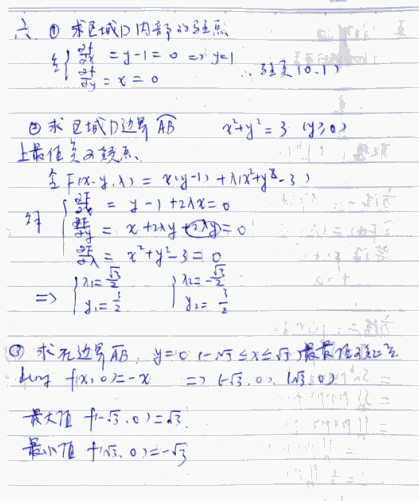 六、① 求区域D内部的驻点
令 { ∂f/∂x = y-1=0 => y=1
∂f/∂y = x = 0 ∴ 驻点(0,1)
② 求区域D边界 AB x²+y²=3 (y≥0)
上最值可疑点
令 F(x,y,λ) = x(y-1)+λ(x²+y²-3)
对 { ∂F/∂x = y-1+2λx=0
∂F/∂y = x+2λy+2λy=0
∂F/∂λ = x²+y²-3=0
=> { x₁=√3/2 y₁=3/2 { x₂=-√3/2 y₂=3/2
③ 求在边界AB, y=0 (-√3≤x≤√3) 最值
f(x,0)=-x => (-√3,0), (√3,0)
最大值 f(-√3,0)=√3
最小值 f(√3,0)=-√3